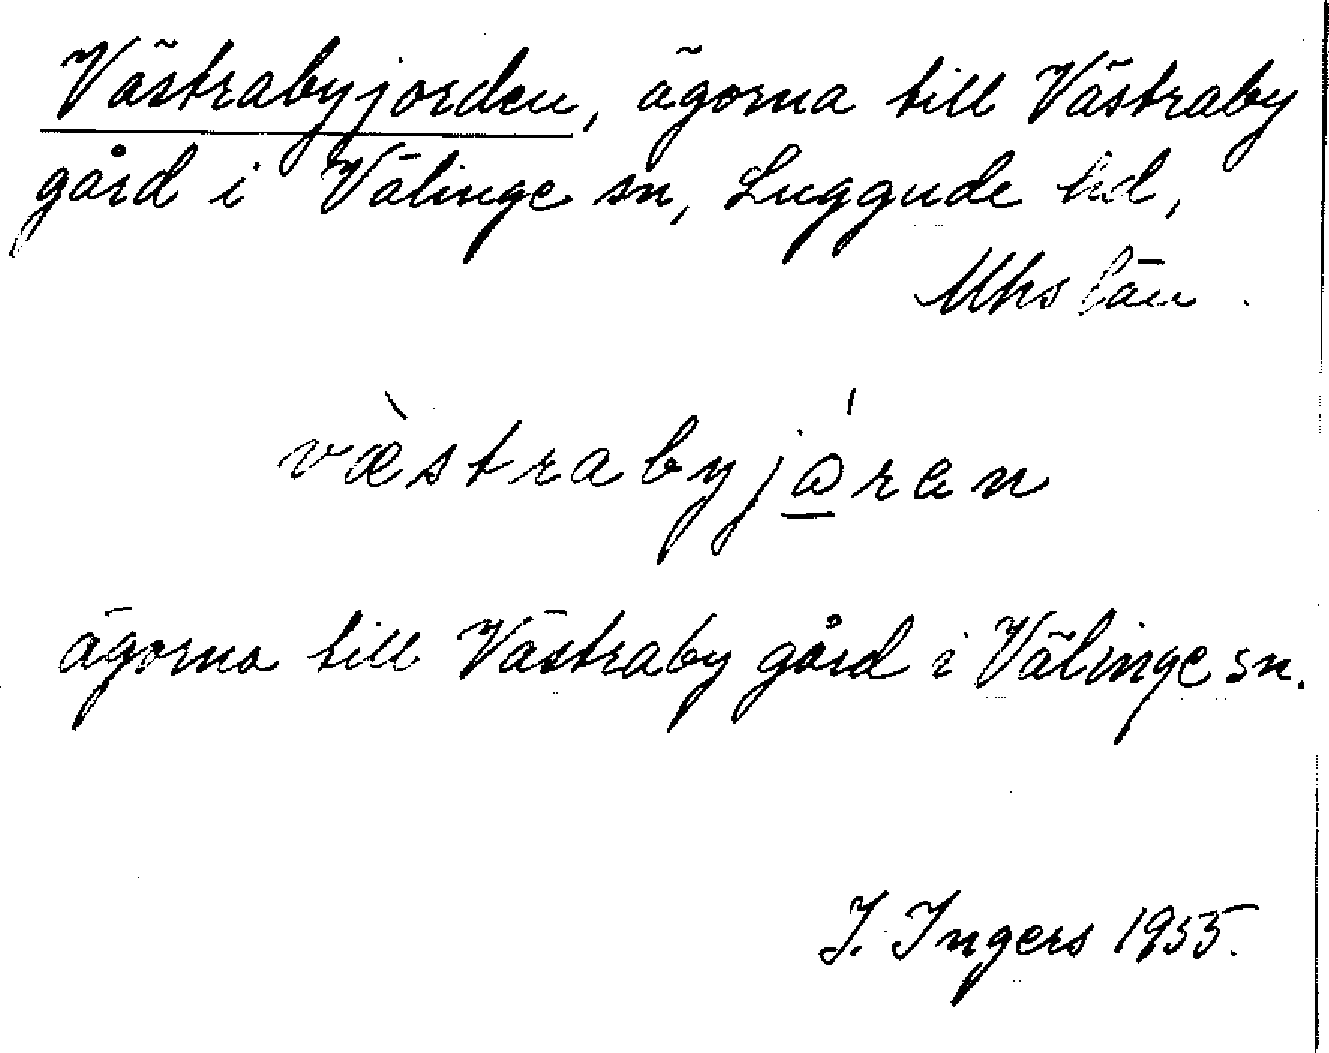 Västrabyjorden, ägorna till Västraby
gård i Välinge sn, Luggude hd,
Mhs län.
væ̀strabyjó̱ran
ägorna till Västraby gård i Välinge sn.
I. Ingers 1955.